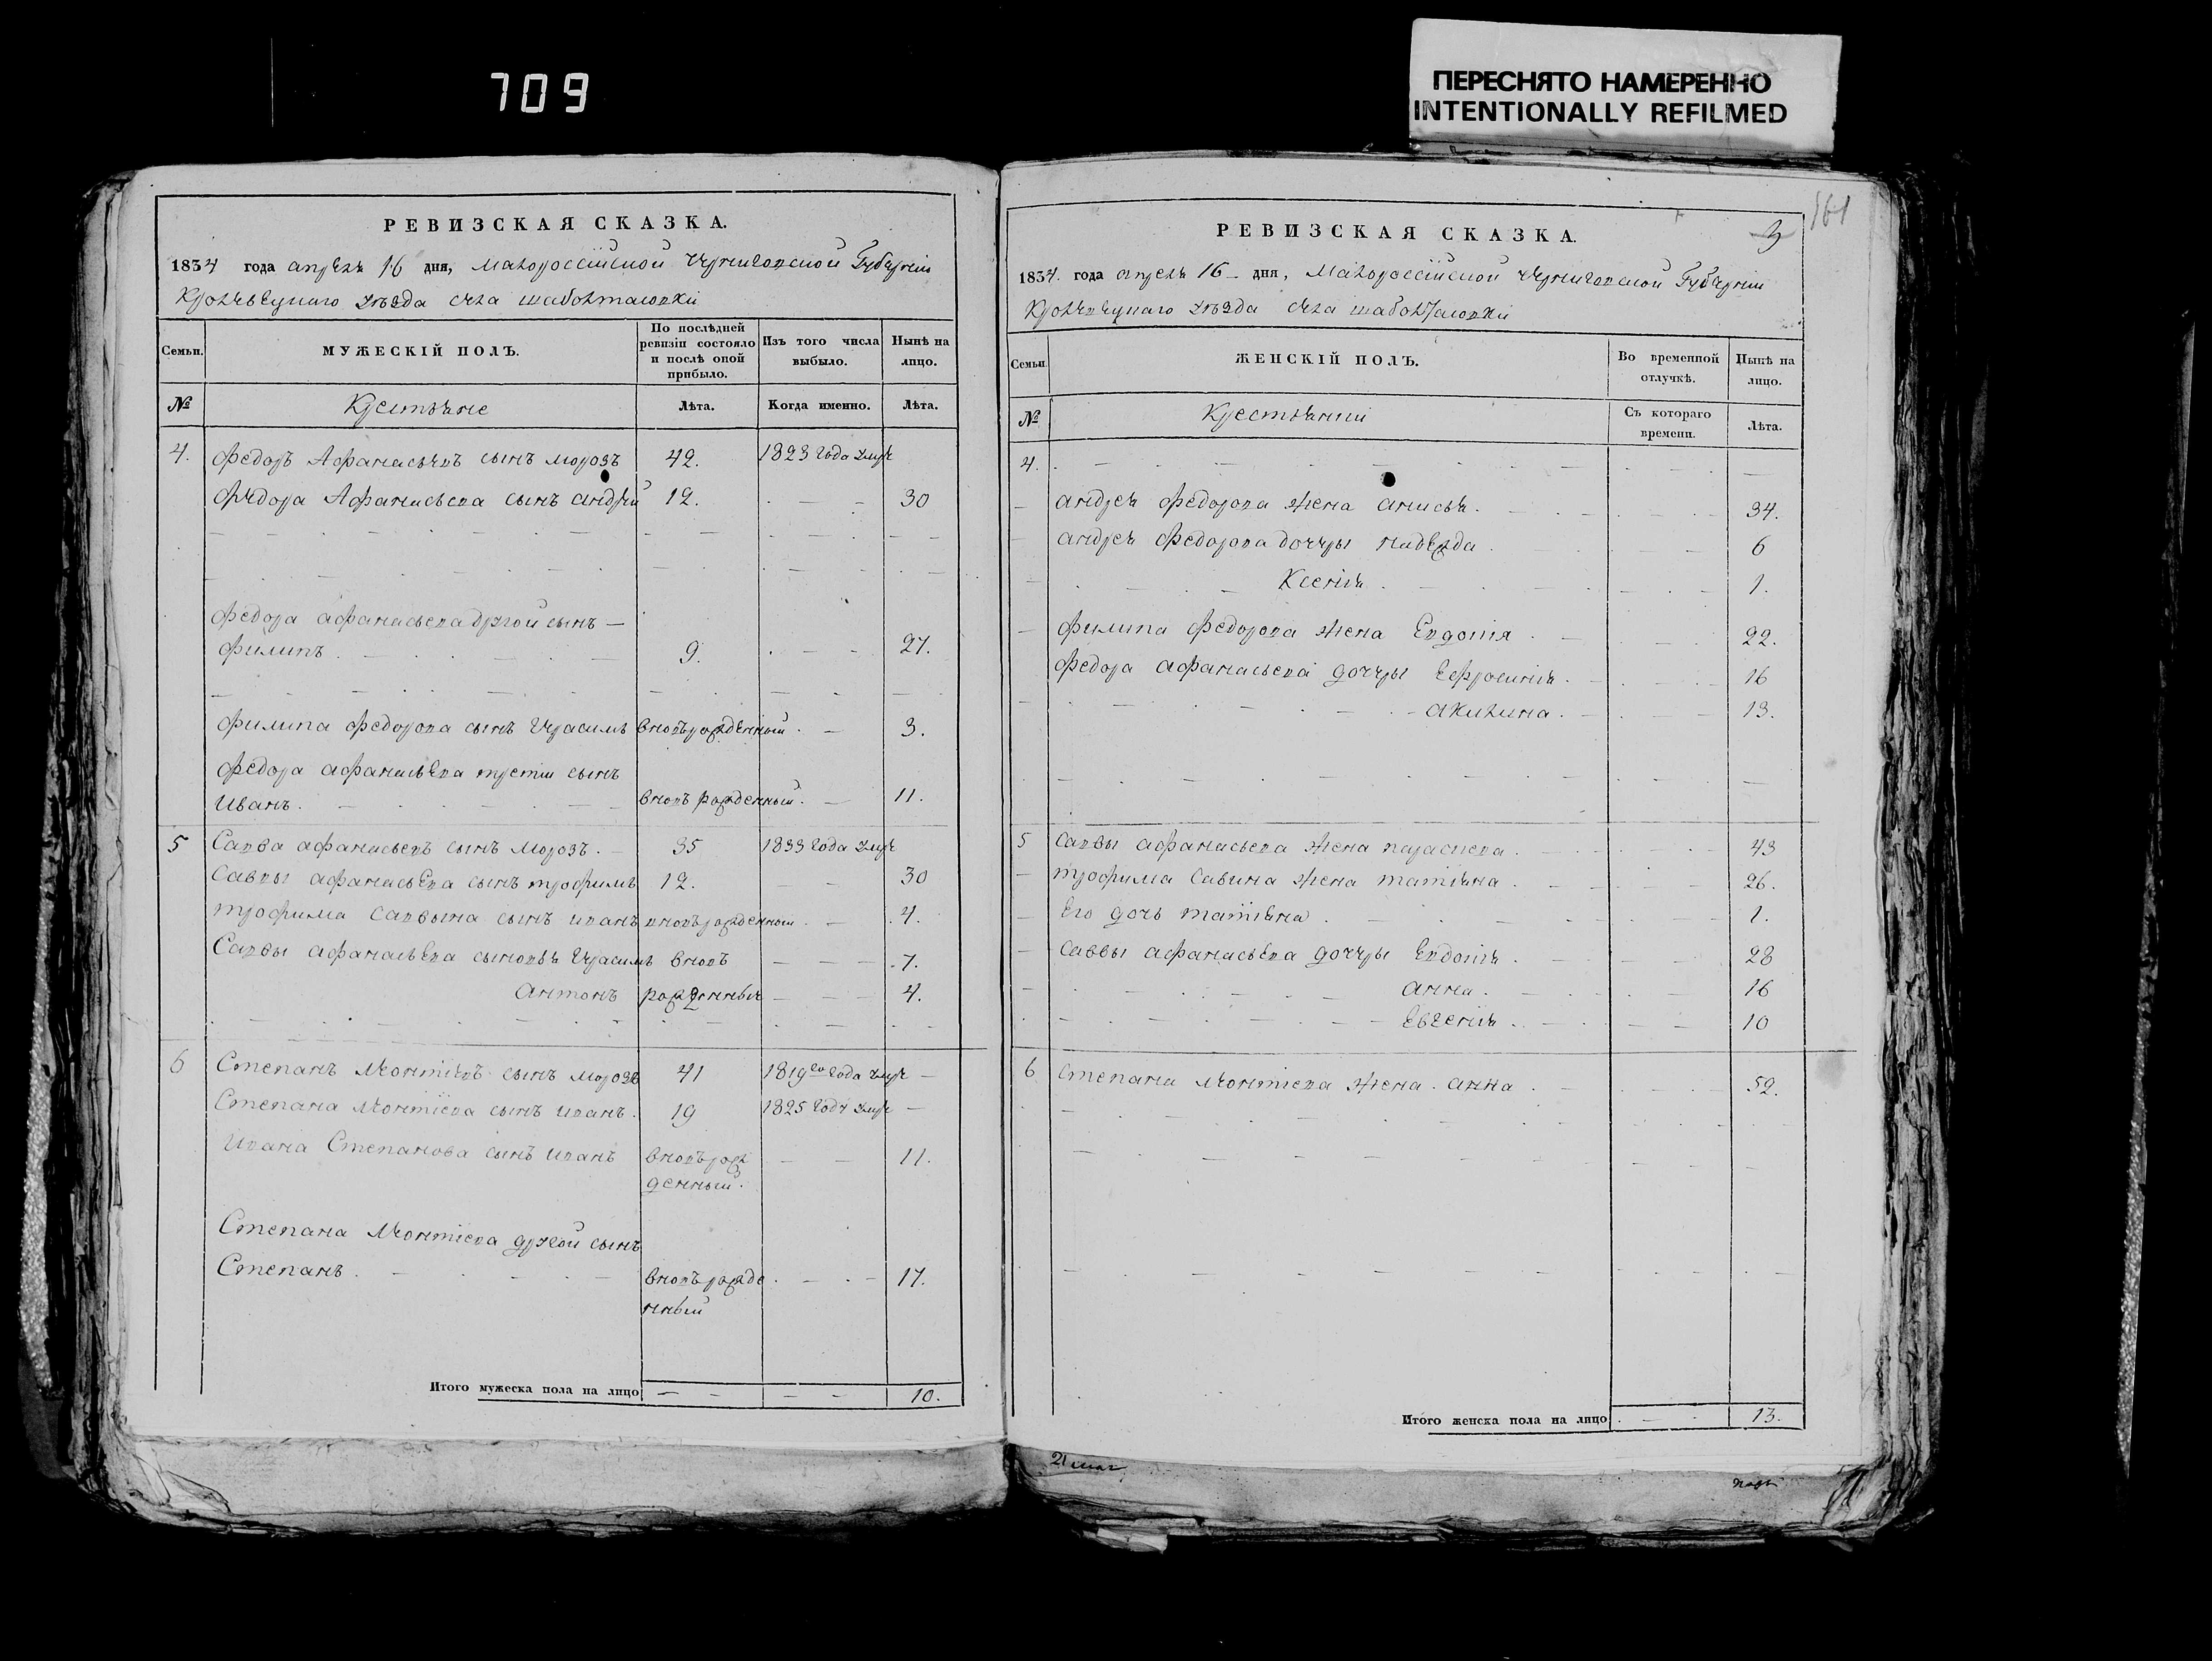 709
ПЕРЕСНЯТО НАМЕРЕННО
INTENTIONALLY REFILMED
РЕВИЗСКАЯ СКАЗКА.
1834 года апреля 16 дня, Малороссійской Черниговской Губерніи
Кролевецкаго уѣзда села Шаболтаювки
Семьи. МУЖЕСКІЙ ПОЛЪ. По послѣдней ревизіи состояло и послѣ оной прибыло. Изъ того числа выбыло. Нынѣ на лицо.
№ Крестьяне Лѣта. Когда именно. Лѣта.
4. Федоръ Афанасьевъ сынъ Морозъ 42. 1823 года умре
Федора Афанасьева сынъ Андрей 12. 30
Федора Афанасьева другой сынъ
Филипъ 9. 27.
Филипа Федорова сынъ Герасимъ вновьрожденный 3.
Федора Афанасьева третій сынъ
Иванъ вновь рожденный. 11.
5 Савва Афанасьевъ сынъ Морозъ. 35 1833 года умре
Саввы Афанасьева сынъ Трофимъ 12. 30
Трофима Саввина сынъ Иванъ вновьрожденный 4.
Саввы Афанасьева сыновья Герасимъ вновь 7.
Антонъ рожденные 4.
6 Степанъ Леонтіевъ сынъ Морозъ 41 1819го года умре
Степана Леонтіева сынъ Иванъ. 19 1825 года умре
Ивана Степанова сынъ Иванъ вновьрож 11.
денный.
Степана Леонтіева другой сынъ
Степанъ. вновьрожде 17.
нный
Итого мужеска пола на лицо 10.
161
3
РЕВИЗСКАЯ СКАЗКА.
1834. года апреля 16 дня, Малороссійской Черниговской Губерніи
Кролевецкаго уѣзда села Шаболтаювки
Семьи. ЖЕНСКІЙ ПОЛЪ. Во временной отлучкѣ. Нынѣ на лицо.
№ Крестьянки Съ котораго времени. Лѣта.
4.
Андрея Федорова жена Анисья. 34.
Андрея Федорова дочери Надежда. 6
Ксенія 1.
Филипа Федорова жена Евдокія 22.
Федора Афанасьева дочери Ефросинія. 16
Акилина. 13.
5 Саввы Афанасьева жена Параскева. 43
Трофима Савина жена Татіяна. 26.
Его дочь Татіяна 1.
Саввы Афанасьева дочери Евдокія. 28
Анна. 16
Евгенія 10
6 Степана Леонтіева жена. Анна. 52.
Итого женска пола на лицо 13.